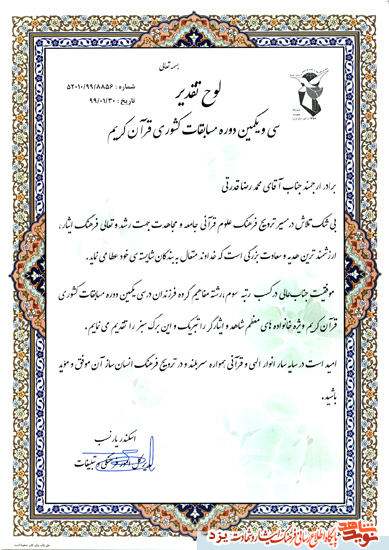 بسمه تعالی
لوح تقدیر
شماره : ۵۲۰۱۰/۹۹/۸۸۵۶
تاریخ : ۹۹/۰۱/۳۰
سی و یکمین دوره مسابقات کشوری قرآن کریم
برادر ارجمند جناب آقای محمد رضا قدرتی
بی شک تلاش در مسیر ترویج فرهنگ علوم قرآنی جامعه و مجاهدت جهت رشد و تعالی فرهنگ ایثار،
ارزشمند ترین هدیه و سعادت بزرگی است که خداوند متعال به بندگان شایسته ی خود عطا می نماید.
موفقیت جنابعالی در کسب رتبه سوم رشته مفاهیم گروه فرزندان در سی و یکمین دوره مسابقات کشوری
قرآن کریم ویژه خانواده های معظم شاهد و ایثارگر را تبریک و این برگ سبز را تقدیم می نمایم.
امید است در سایه سار انوار الهی و قرآنی همواره سربلند و در ترویج فرهنگ انسان ساز آن موفق و مؤید
باشید.
اسکندر یارنسب
مدیر کل امور فرهنگی و تبلیغات
نوید شاهد
پایگاه اطلاع رسانی فرهنگ ایثار و شهادت یزد